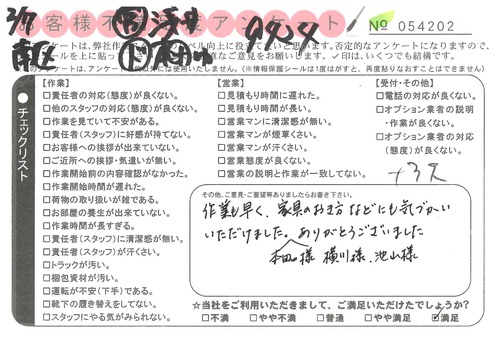 2/7
南区
お客様不満足度アンケート
№ 054202
アンケートは、弊社作
レベル向上に役立てたいと思います。否定的なアンケートになりますので、
直なご意見をお願いします。✓印は、いくつでも結構です。
のアンケートは、アンケート
以外には使用いたしません。(※情報保護シールは1度はがすと、再度貼りなおすことはできません)
チェックリスト
【作業】
□責任者の対応(態度)が良くない。
□他のスタッフの対応(態度)が良くない。
□作業を見ていて不安がある。
□責任者(スタッフ)に好感が持てない。
□お客様への挨拶が出来ていない。
□ご近所への挨拶・気遣いが無い。
□作業開始前の内容確認がなかった。
□作業開始時間が遅れた。
□荷物の取り扱いが雑である。
□お部屋の養生が出来ていない。
□作業時間が長すぎる。
□責任者(スタッフ)に清潔感が無い。
□責任者(スタッフ)が汗くさい。
□トラックが汚い。
□梱包資材が汚い。
□運転が不安(下手)である。
□靴下の履き替えをしてない。
□スタッフにやる気がみられない。
【営業】
□見積もり時間に遅れた。
□見積もり時間が長い。
□営業マンに清潔感が無い。
□営業マンが煙草くさい。
□営業マンが汗くさい。
□営業態度が良くない。
□営業の説明と作業が一致してない。
【受付・その他】
□電話の対応が良くない。
□オプション業者の説明
・作業が良くない。
□オプション業者の対応
(態度)が良くない。
その他、ご意見・ご要望等ありましたらお書き下さい。
作業も早く、家具のおき方などにも気づかい
いただけました。ありがとうございました
本田様 横川様、池山様
☆当社をご利用いただきまして、ご満足いただけたでしょうか?
□不満 □やや不満 □普通 □やや満足 ☑満足